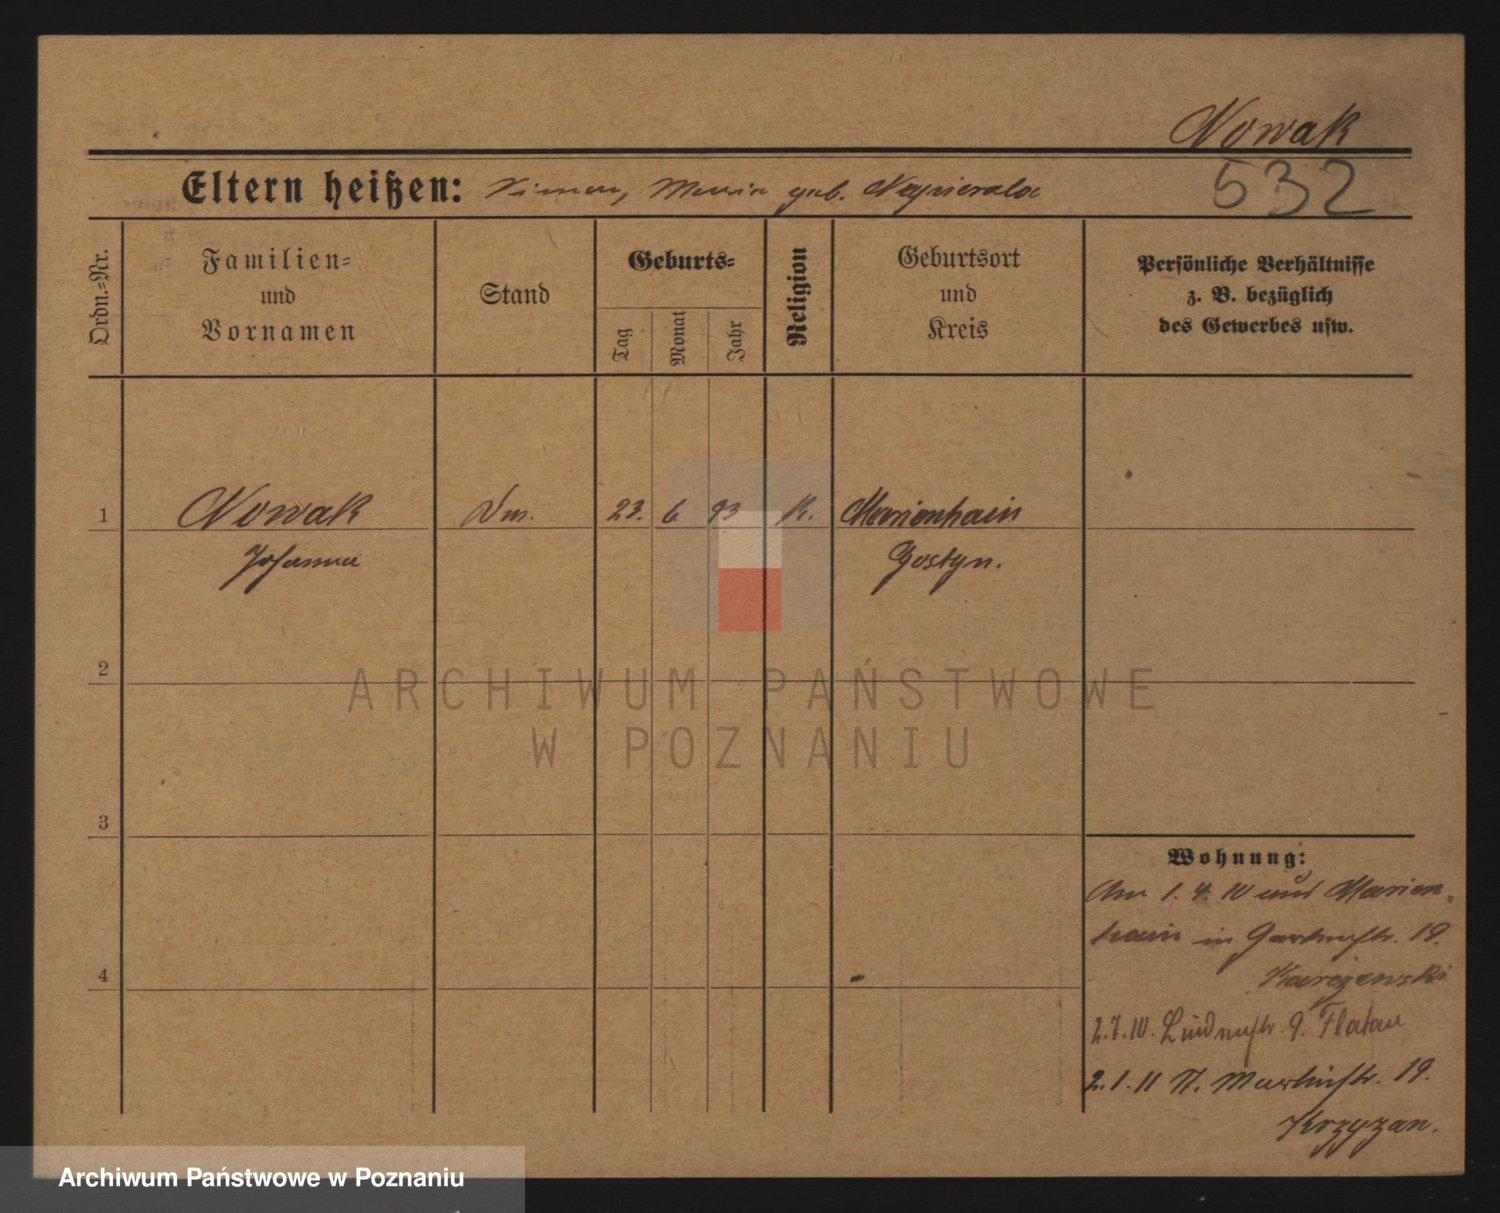 Nowak
532
Eltern heißen: Simon, Maria geb. Napierala
Ordn.-Nr.
Familien-
und
Vornamen
Stand
Geburts-
Tag
Monat
Jahr
Religion
Geburtsort
und
Kreis
Persönliche Verhältnisse
z. B. bezüglich
des Gewerbes usw.
1 Nowak 23. 6. 93 K. Marienhain
Johanna Gostyn.
2
3
4
Wohnung:
Am 1. 4. 10 aus Marien-
hain in Gartenstr. 19.
2.7.10. Lindenstr. 9. Flatau
2.1.11 St. Martinstr. 19.
Krzyzan.
ARCHIWUM PAŃSTWOWE
W POZNANIU
Archiwum Państwowe w Poznaniu